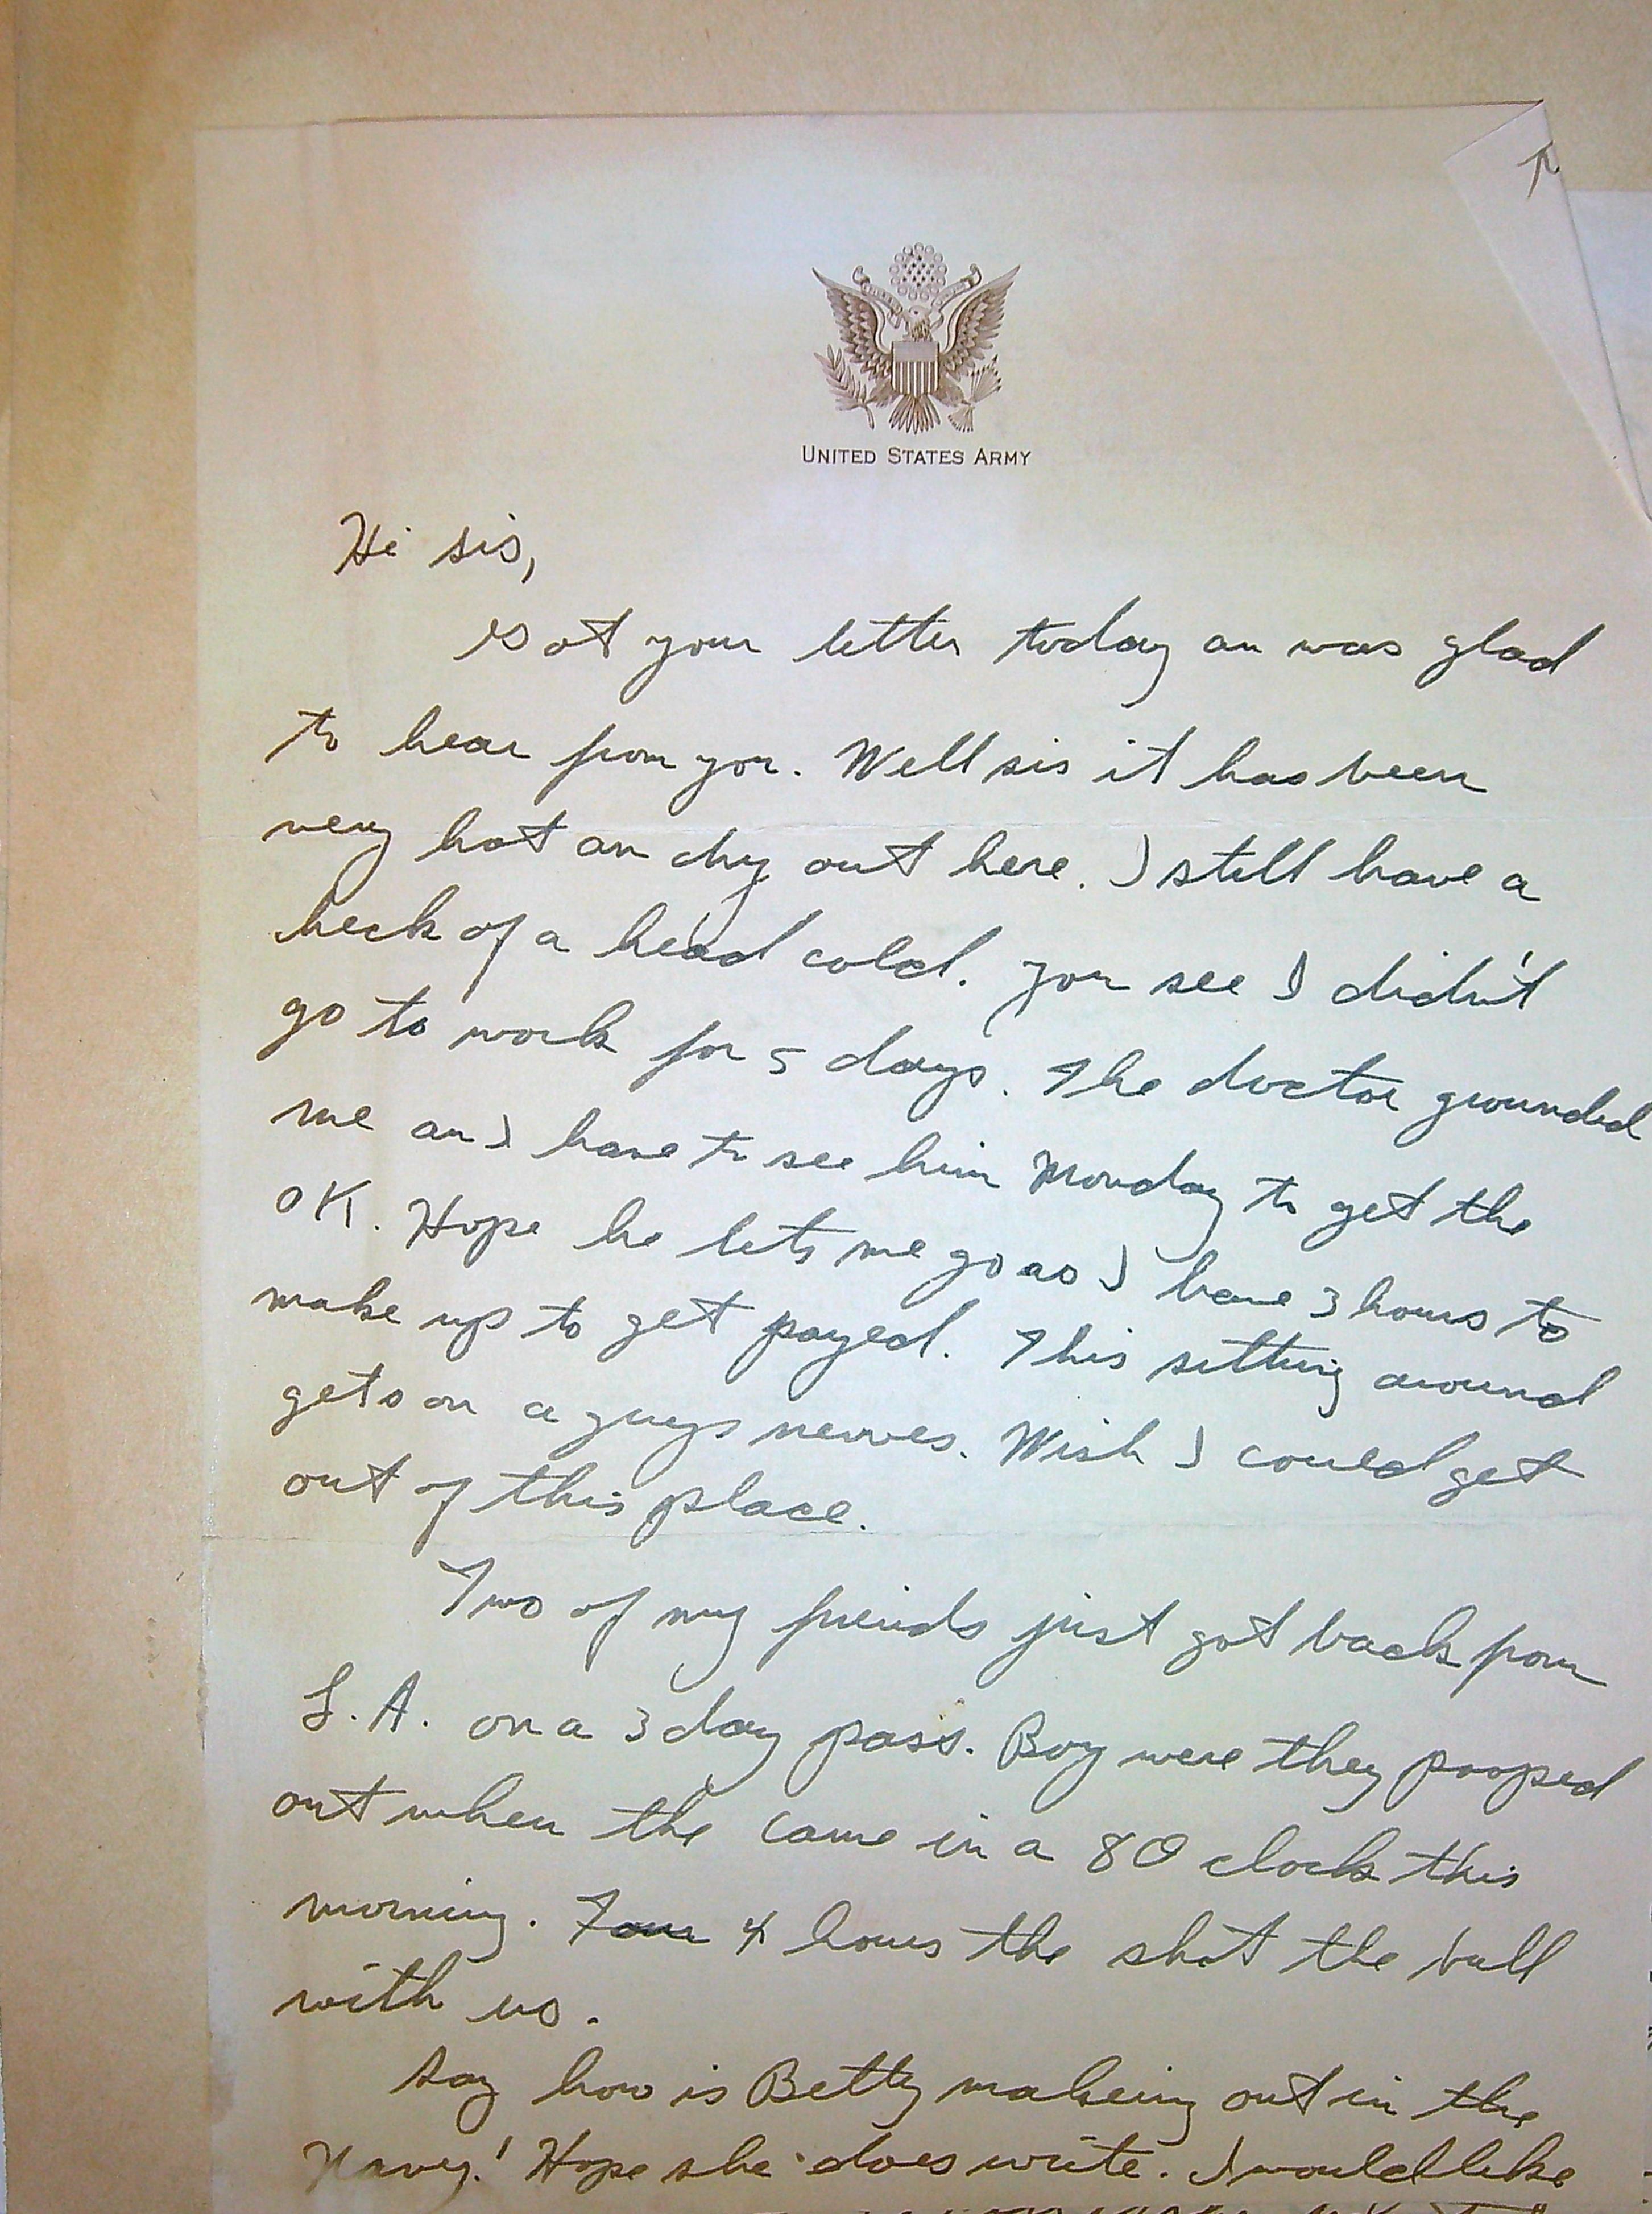 UNITED STATES ARMY
Hi sis,
Got your letter today an was glad
to hear from you. Well sis it has been
very hot an dry out here. I still have a
heck of a head cold. you see I didn't
go to work for 5 days. The doctor grounded
me an I have to see him Monday to get the
OK. Hope he lets me go as I have 3 hours to
make up to get payed. This sitting around
gets on a guys nerves. Wish I could get
out of this place.
Two of my friends just got back from
L.A. on a 3 day pass. Boy were they pooped
out when the came in a 8 O clock this
morning. 4 hours the shot the bull
with us.
Say how is Betty makeing out in the
Navy! Hope she does write. I would like